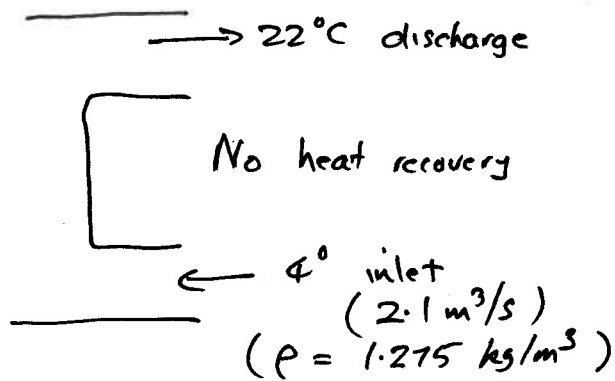 → 22°C discharge
No heat recovery
← 4° inlet
(2.1 m³/s)
(ρ = 1.275 kg/m³)